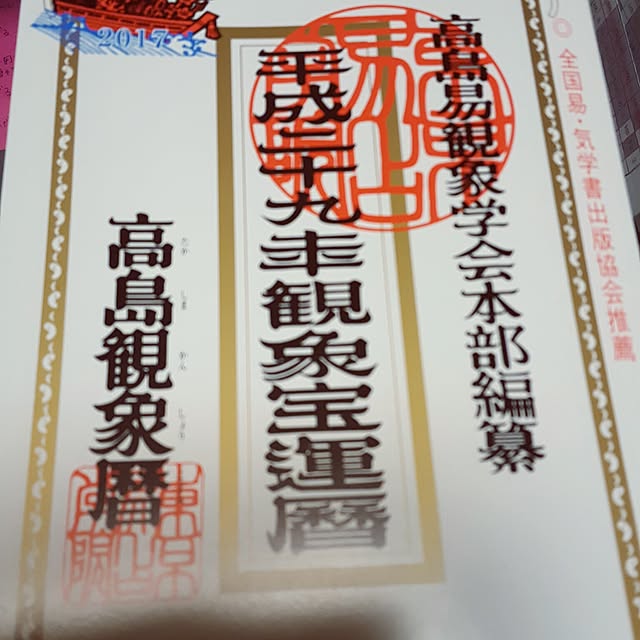 2017
◎全国易・気学書出版協会推薦
高島易観象学会本部編纂
平成二十九年観象宝運暦
高島観象暦
たか しま かん しょう